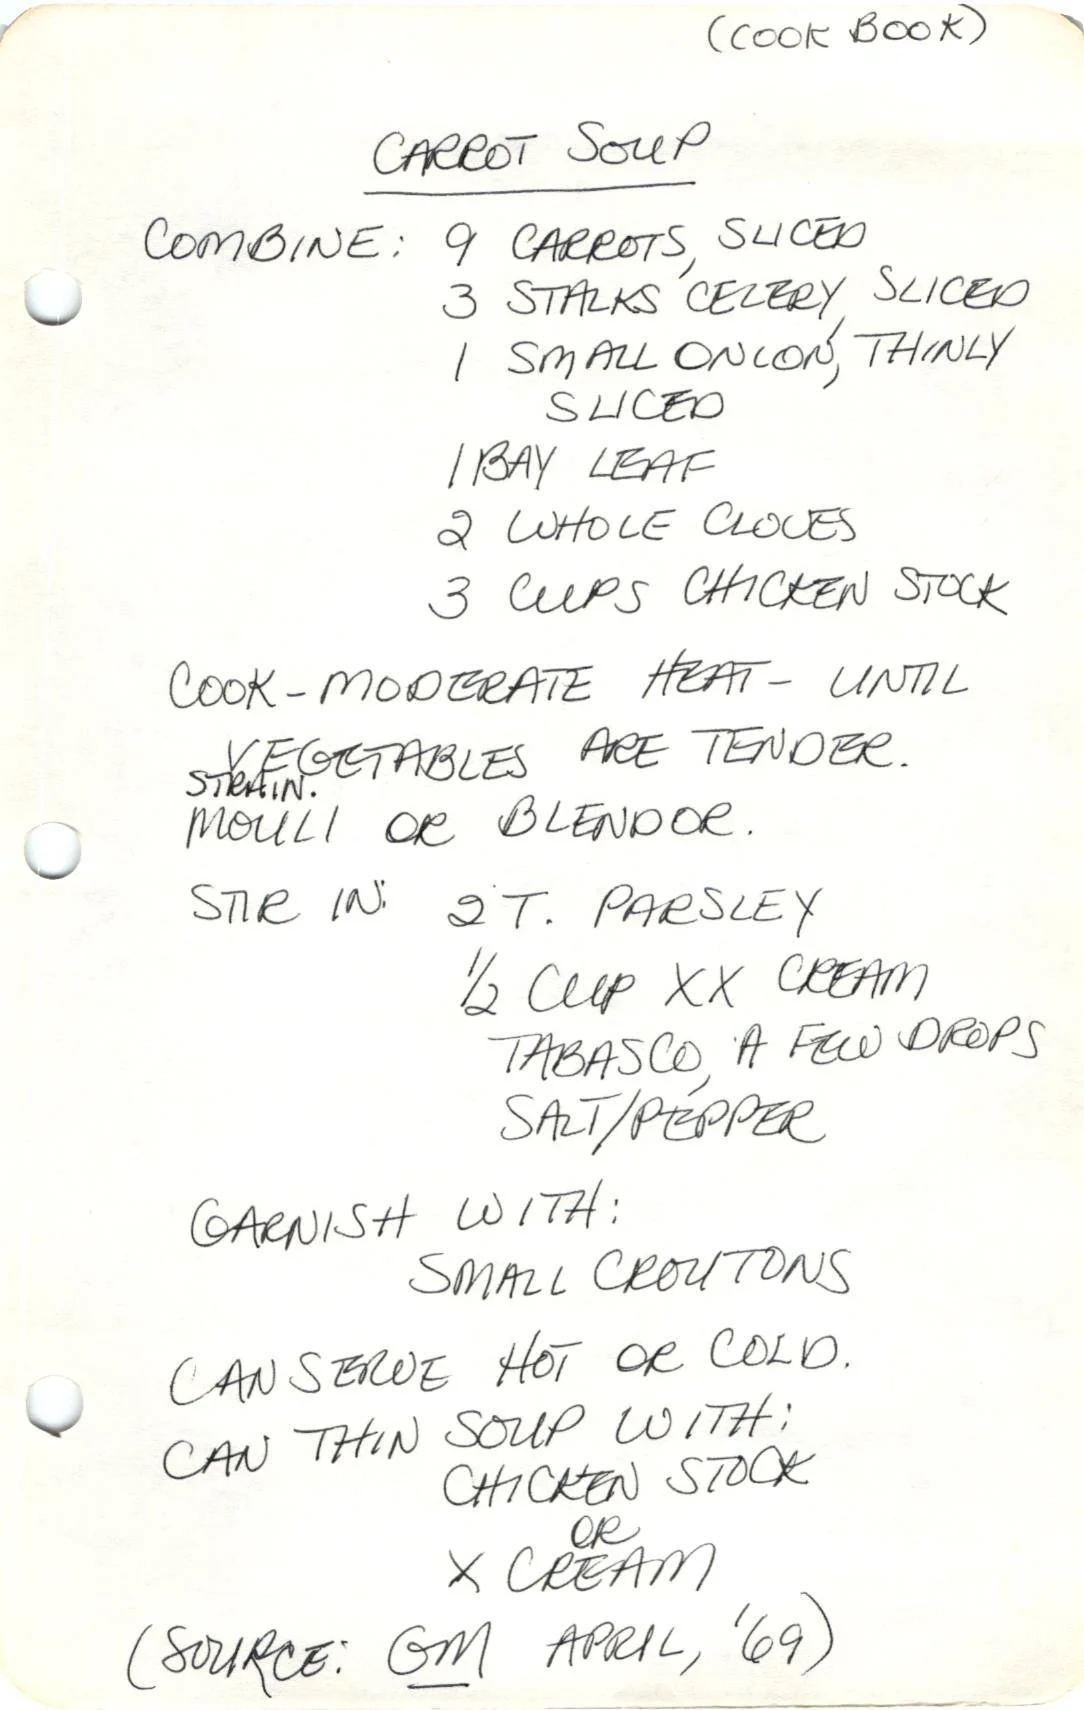 (COOK BOOK)
CARROT SOUP
COMBINE: 9 CARROTS, SLICED
3 STALKS CELERY, SLICED
1 SMALL ONION, THINLY
SLICED
1 BAY LEAF
2 WHOLE CLOVES
3 CUPS CHICKEN STOCK
COOK - MODERATE HEAT - UNTIL
VEGETABLES ARE TENDER.
STRAIN.
MOULI OR BLENDOR.
STIR IN: 2 T. PARSLEY
1/2 CUP XX CREAM
TABASCO, A FEW DROPS
SALT/PEPPER
GARNISH WITH:
SMALL CROUTONS
CAN SERVE HOT OR COLD.
CAN THIN SOUP WITH:
CHICKEN STOCK
OR
X CREAM
(SOURCE: GM APRIL, '69)